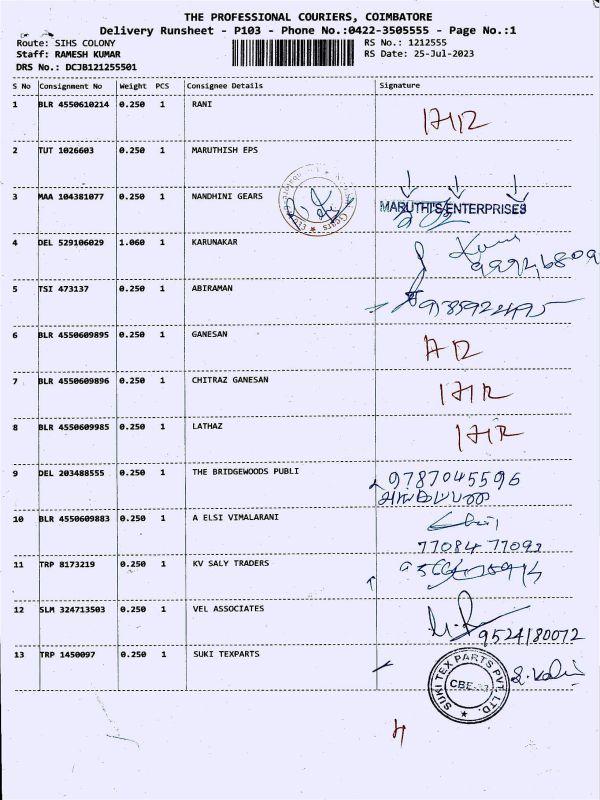 THE PROFESSIONAL COURIERS, COIMBATORE
Delivery Runsheet - P103 - Phone No.:0422-3505555 - Page No.:1
Route: SIHS COLONY RS No.: 1212555
Staff: RAMESH KUMAR RS Date: 25-Jul-2023
DRS No.: DCJB121255501
S No Consignment No Weight PCS Consignee Details Signature
1 BLR 4550610214 0.250 1 RANI
2 TUT 1026603 0.250 1 MARUTHISH EPS
3 MAA 104381077 0.250 1 NANDHINI GEARS MARUTHI'S ENTERPRISES
4 DEL 529106029 1.060 1 KARUNAKAR
5 TSI 473137 0.250 1 ABIRAMAN
6 BLR 4550609895 0.250 1 GANESAN
7 BLR 4550609896 0.250 1 CHITRAZ GANESAN
8 BLR 4550609985 0.250 1 LATHAZ
9 DEL 203488555 0.250 1 THE BRIDGEWOODS PUBLI 9787045596
10 BLR 4550609883 0.250 1 A ELSI VIMALARANI
77084 77092
11 TRP 8173219 0.250 1 KV SALY TRADERS
12 SLM 324713503 0.250 1 VEL ASSOCIATES
9524180072
13 TRP 1450097 0.250 1 SUKI TEXPARTS
SUKI TEX PARTS PVT. LTD.